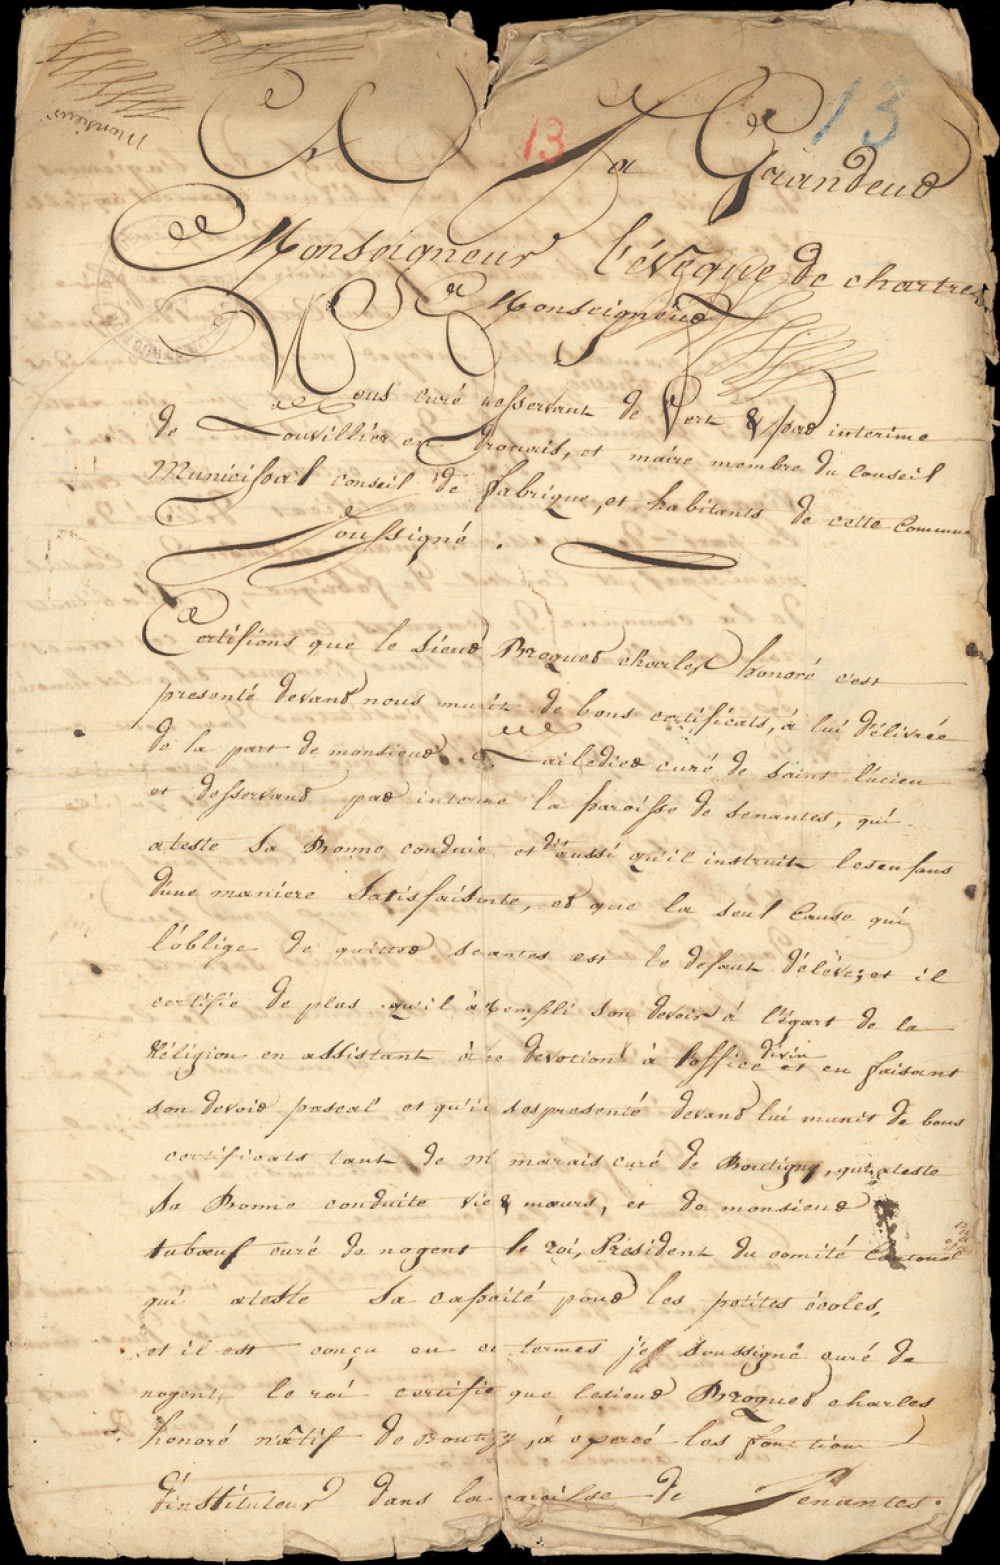 Monsieur
13
13
A Sa Grandeur
Monseigneur l'évêque de chartres
Monseigneur
Nous curé desservant de Vert & par interime
de Louvillier en Drouais, et maire membre du Conseil
Municipal conseil de fabrique, et habitants de cette Commune
Soussigné.
Certifions que le Sieur Broquer charles honoré c'est
presenté devand nous munit de bons certificats, à lui délivrée
de la part de monsieur Lailedier curé de saint lucien
et desservand par interime la paroisse de senantes, qui
ateste Sa Bonne conduie et dit aussi qu'il instruit les enfans
dune maniere Satisfaisente, et que la seul Cause qui
l'oblige de quitter seantes est le defaut d'élève; et il
certifie de plus qu'il à rempli son devoir à l'égart de la
Réligion en assistant à ce devotion à l'office divin et en faisant
son devoir pascal et qu'il sespresenté devand lui munit de bons
certificats tant de mr marais curé de Boutigny, qui ateste
Sa Bonne conduite vie & mœurs, et de monsieur
tubœuf curé de nogent le roi, Président du comité Cantonal
qui ateste Sa capaité pour les petites écoles,
et il est conçu en ce termes je soussigné curé de
nogent le roi certifie que lesieur Broquer charles
honoré nâtif de Boutigy, à exercé les fonction
d'instituteur dans la paroisse de Senantes.